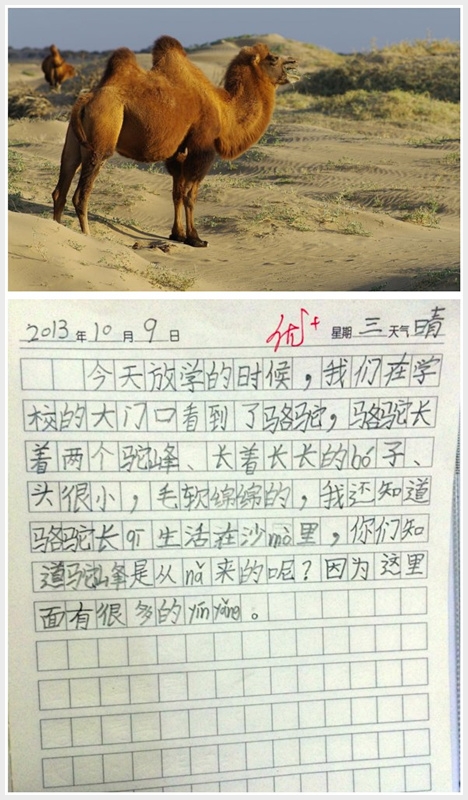 2013年10月9日 优+ 星期三天气晴
今天放学的时候，我们在学
校的大门口看到了骆驼，骆驼长
着两个驼峰、长着长长的bó子、
头很小，毛软绵绵的，我还知道
骆驼长qī生活在沙mò里，你们知
道驼峰是从nǎ来的呢？因为这里
面有很多的yínyǎng。